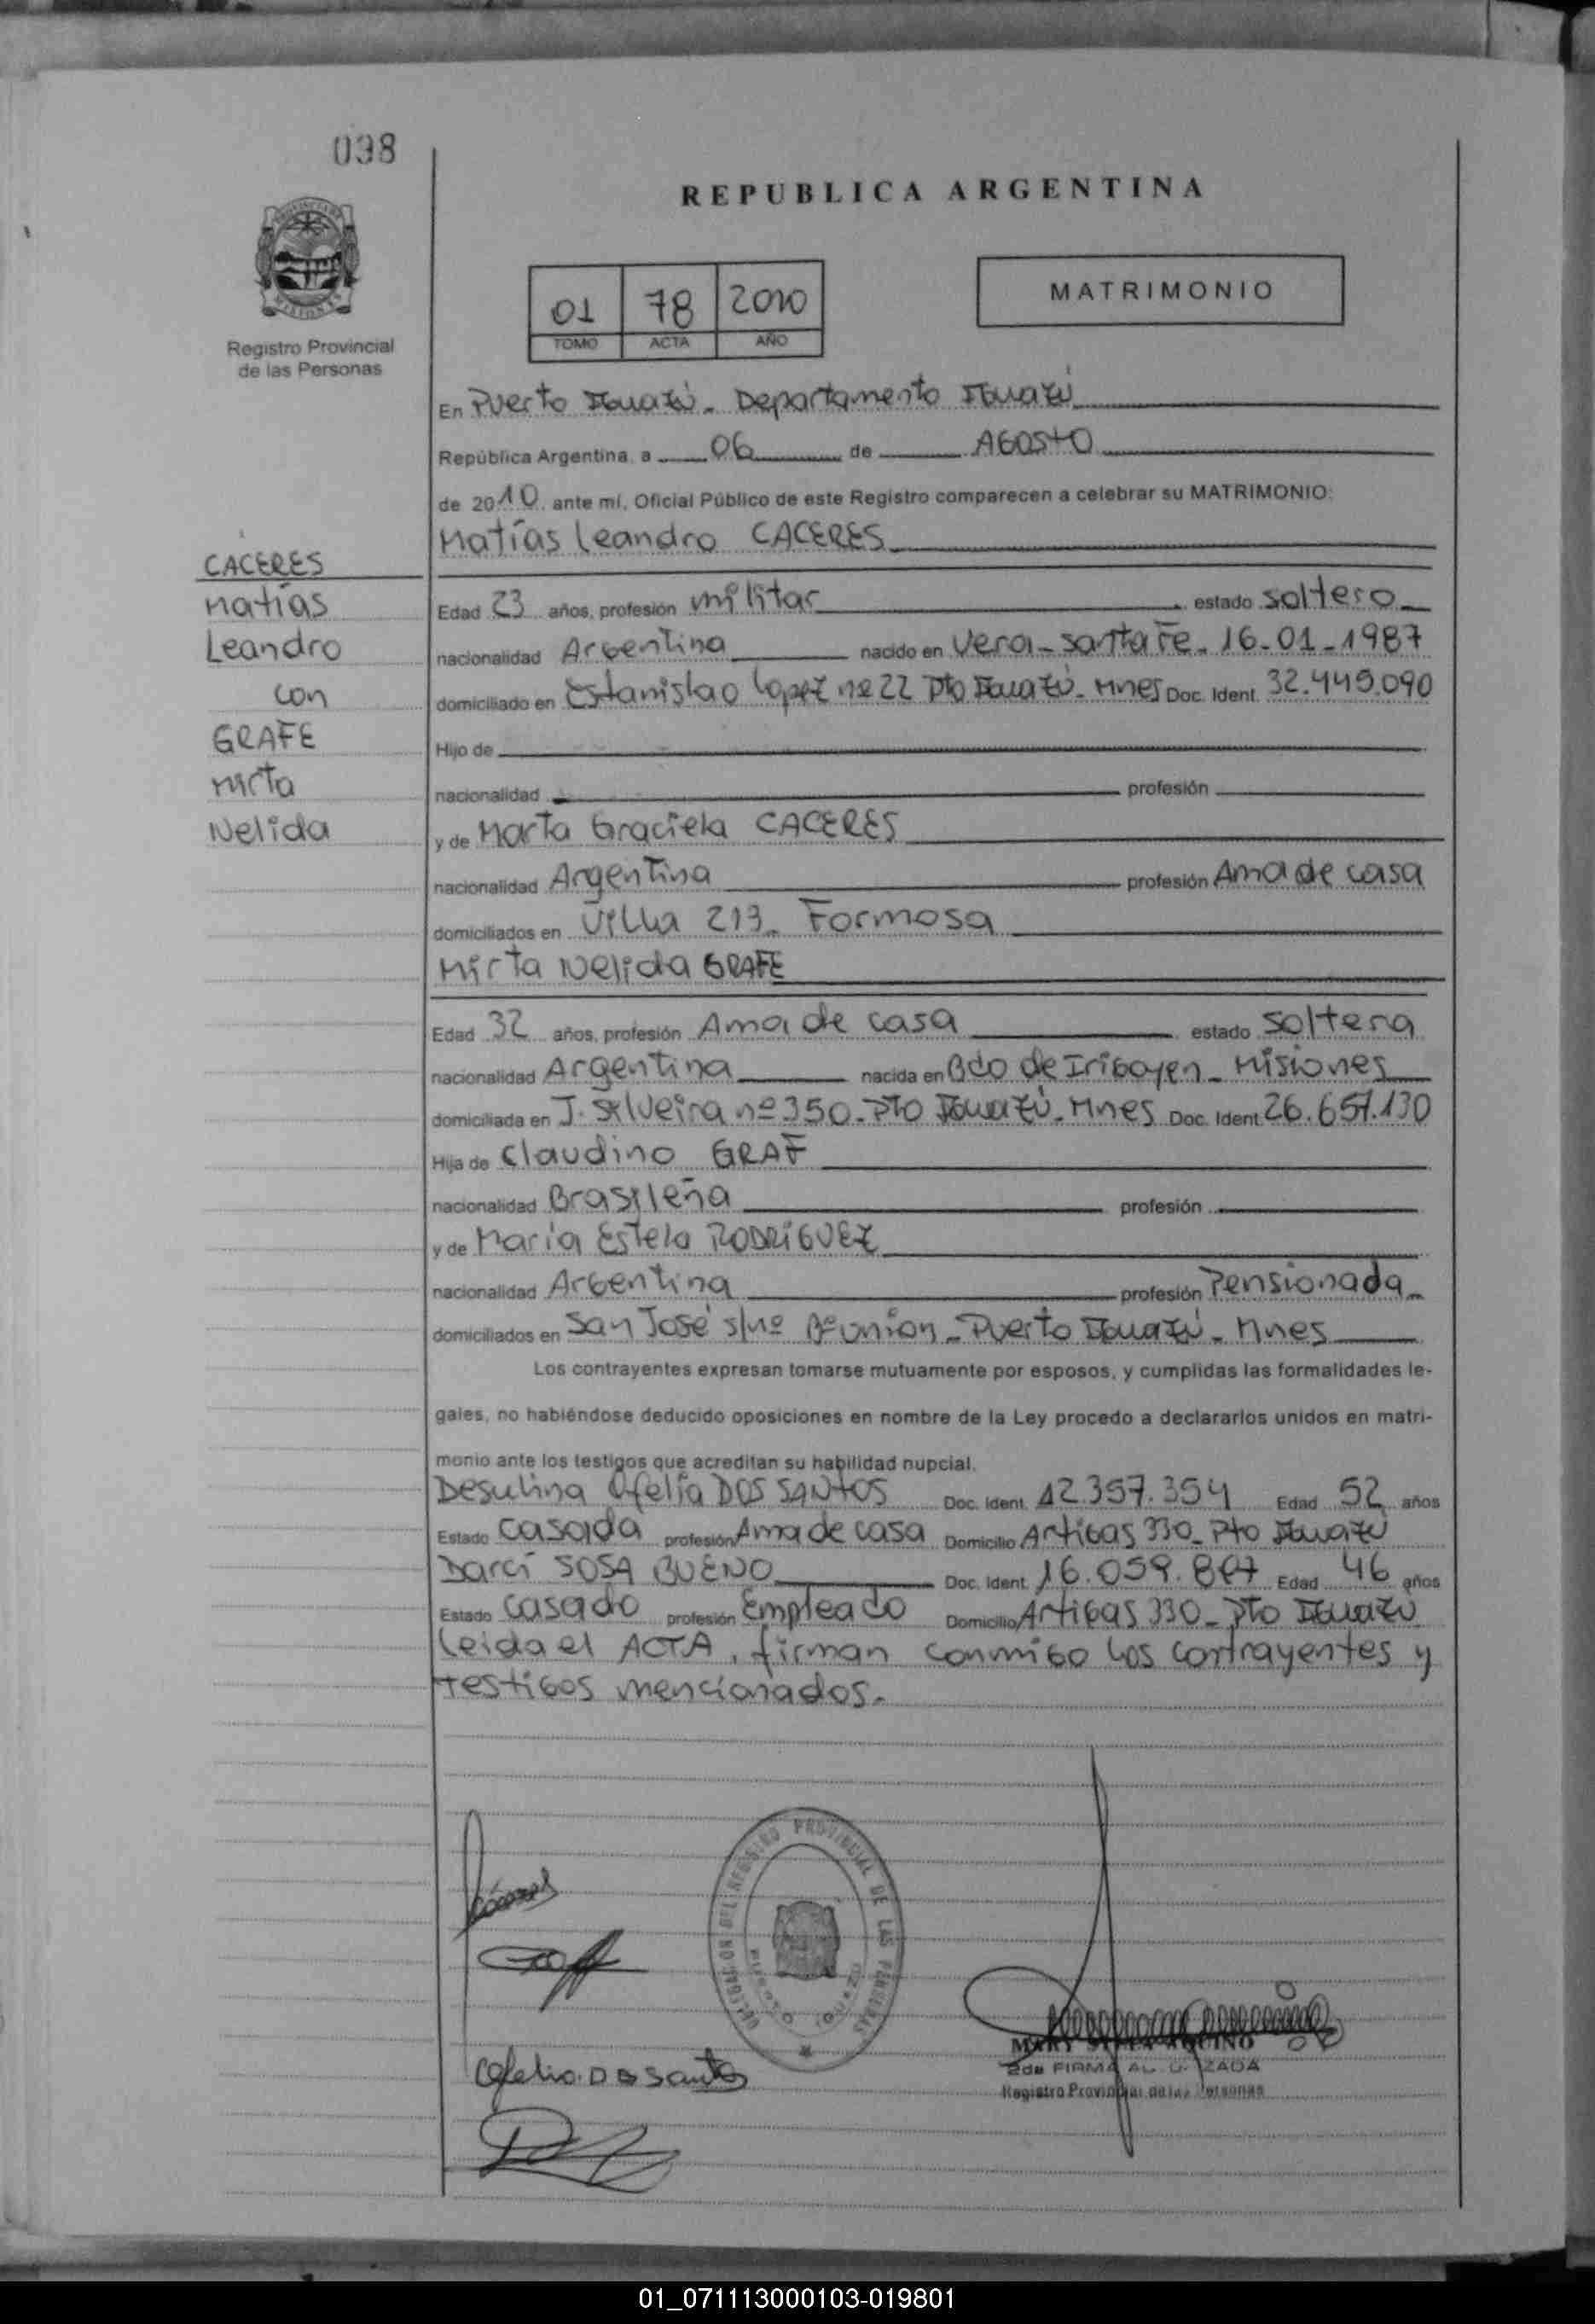 038
REPUBLICA ARGENTINA
01 78 2010
TOMO ACTA AÑO
MATRIMONIO
Registro Provincial
de las Personas
En Puerto Iguazú. Departamento Iguazú
República Argentina, a 06 de AGOSTO
de 2010 ante mí, Oficial Público de este Registro comparecen a celebrar su MATRIMONIO:
Matías Leandro CACERES
CACERES
Matías
Leandro
con
GRAFE
Mirta
Nelida
Edad 23 años, profesión militar estado soltero
nacionalidad Argentina nacido en Vera - Santa Fe. 16-01-1987
domiciliado en Estanislao Lopez nº 22 Pto Iguazú - Mnes Doc. Ident. 32.449.090
Hijo de
nacionalidad profesión
y de Marta Graciela CACERES
nacionalidad Argentina profesión Ama de casa
domiciliados en Villa 213 - Formosa
Mirta Nelida GRAFE
Edad 32 años, profesión Ama de casa estado soltera
nacionalidad Argentina nacida en Bdo de Irigoyen - Misiones
domiciliada en J. Silveira nº 350 - Pto Iguazú - Mnes Doc. Ident. 26.657.130
Hija de Claudino GRAF
nacionalidad Brasileña profesión
y de María Estela RODRIGUEZ
nacionalidad Argentina profesión Pensionada
domiciliados en San José s/nº Bº Union - Puerto Iguazú - Mnes
Los contrayentes expresan tomarse mutuamente por esposos, y cumplidas las formalidades le-
gales, no habiéndose deducido oposiciones en nombre de la Ley procedo a declararlos unidos en matri-
monio ante los testigos que acreditan su habilidad nupcial.
Desulina Ofelia DOS SANTOS Doc. Ident. 12.357.354 Edad 52 años
Estado Casada profesión Ama de casa Domicilio Artigas 330 - Pto Iguazú
Darci SOSA BUENO Doc. Ident. 16.059. Edad 46 años
Estado Casado profesión Empleado Domicilio Artigas 330 - Pto Iguazú
Leida el ACTA, firman conmigo los contrayentes y
testigos mencionados.
DELEGACION DEL REGISTRO PROVINCIAL DE LAS PERSONAS
PUERTO IGUAZU
Ofelia Dos Santos
MARY AQUINO
2da FIRMA
Registro Provincial de las Personas
01_071113000103-019801